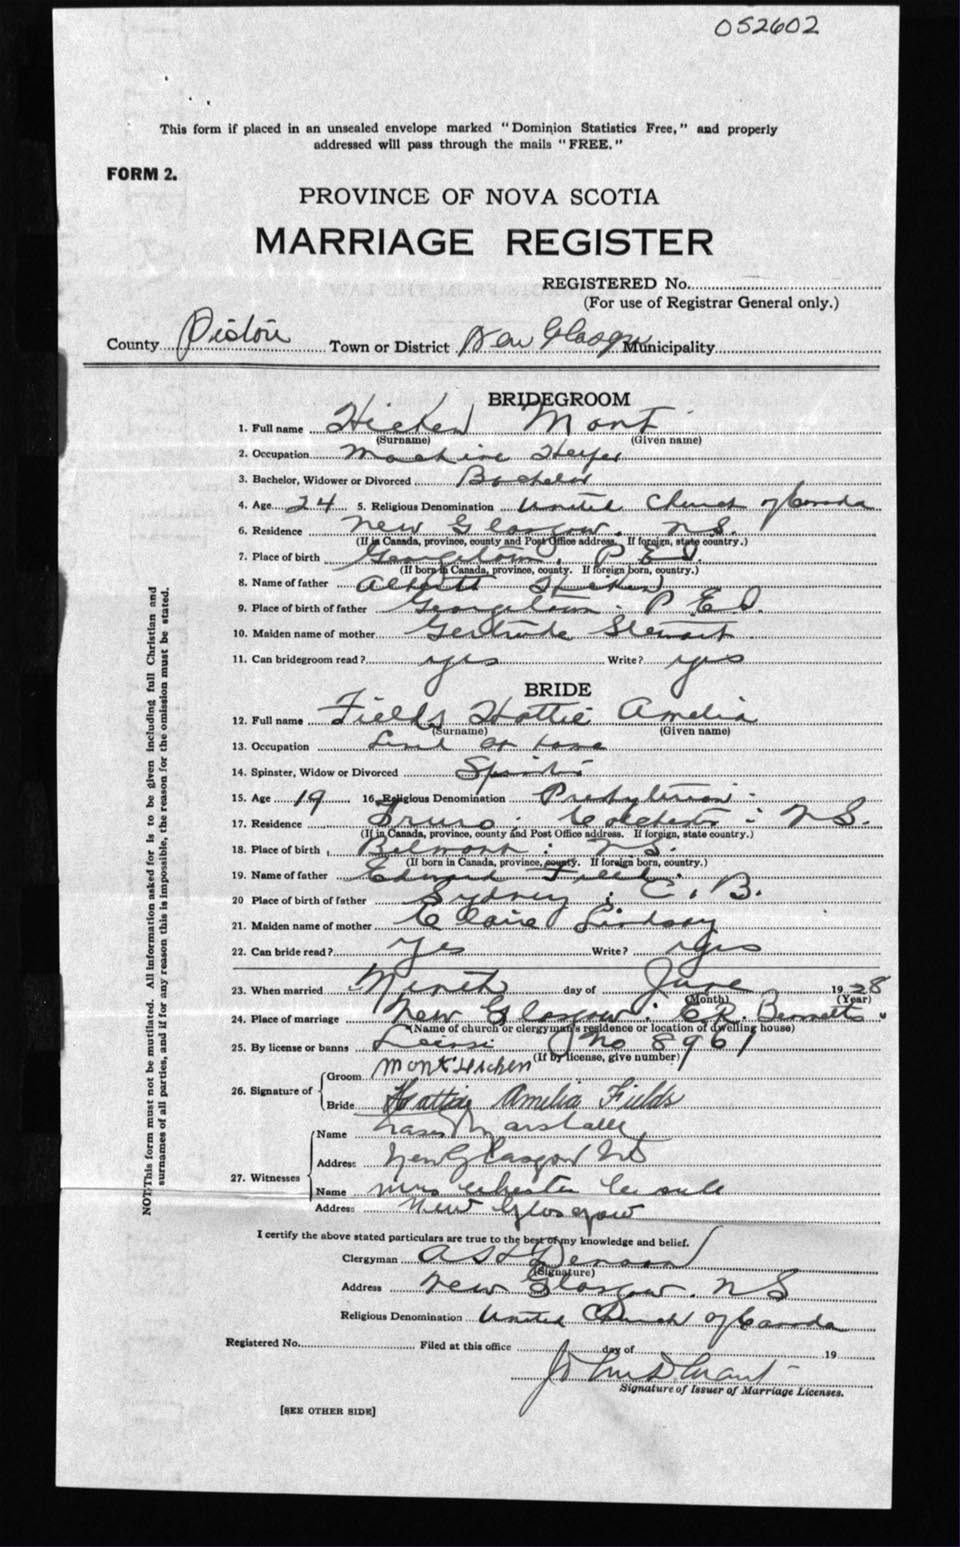 052602
This form if placed in an unsealed envelope marked "Dominion Statistics Free," and properly
addressed will pass through the mails "FREE."
FORM 2.
PROVINCE OF NOVA SCOTIA
MARRIAGE REGISTER
REGISTERED No.
(For use of Registrar General only.)
County Pictou Town or District New Glasgow Municipality
BRIDEGROOM
1. Full name Hicken Mont
(Surname) (Given name)
2. Occupation Machine Helper
3. Bachelor, Widower or Divorced Bachelor
4. Age 24 5. Religious Denomination United Church of Canada
6. Residence New Glasgow. N.S.
(If in Canada, province, county and Post Office address. If foreign, state country.)
7. Place of birth Georgetown, P.E.I.
(If born in Canada, province, county. If foreign born, country.)
8. Name of father Albert Hicken
9. Place of birth of father Georgetown. P.E.I.
10. Maiden name of mother Gertrude Stewart
11. Can bridegroom read? yes Write? yes
BRIDE
12. Full name Fields Hattie Amelia
(Surname) (Given name)
13. Occupation at home
14. Spinster, Widow or Divorced Spinster
15. Age 19 16. Religious Denomination Presbyterian
17. Residence Truro. Colchester N.S.
(If in Canada, province, county and Post Office address. If foreign, state country.)
18. Place of birth Belmont N.S.
(If born in Canada, province, county. If foreign born, country.)
19. Name of father Edward Fields
20 Place of birth of father Sydney, C.B.
21. Maiden name of mother Claire Lindsay
22. Can bride read? Yes Write? yes
23. When married Ninth day of June 1928
(Month) (Year)
24. Place of marriage New Glasgow. E.R. Bennetts
(Name of church or clergyman's residence or location of dwelling house)
25. By license or banns No 8961
(If by license, give number)
26. Signature of Groom Mont Hicken
Bride Hattie Amelia Fields
27. Witnesses Name Marshall
Address New Glasgow NS
Name Mrs Chester
Address New Glasgow
I certify the above stated particulars are true to the best of my knowledge and belief.
Clergyman
(Signature)
Address New Glasgow. NS
Religious Denomination United Church of Canada
Registered No. Filed at this office day of 19
John D Grant
Signature of Issuer of Marriage Licenses.
[SEE OTHER SIDE]
NOT: This form must not be mutilated. All information asked for is to be given including full Christian and
surnames of all parties, and if for any reason this is impossible, the reason for the omission must be stated.